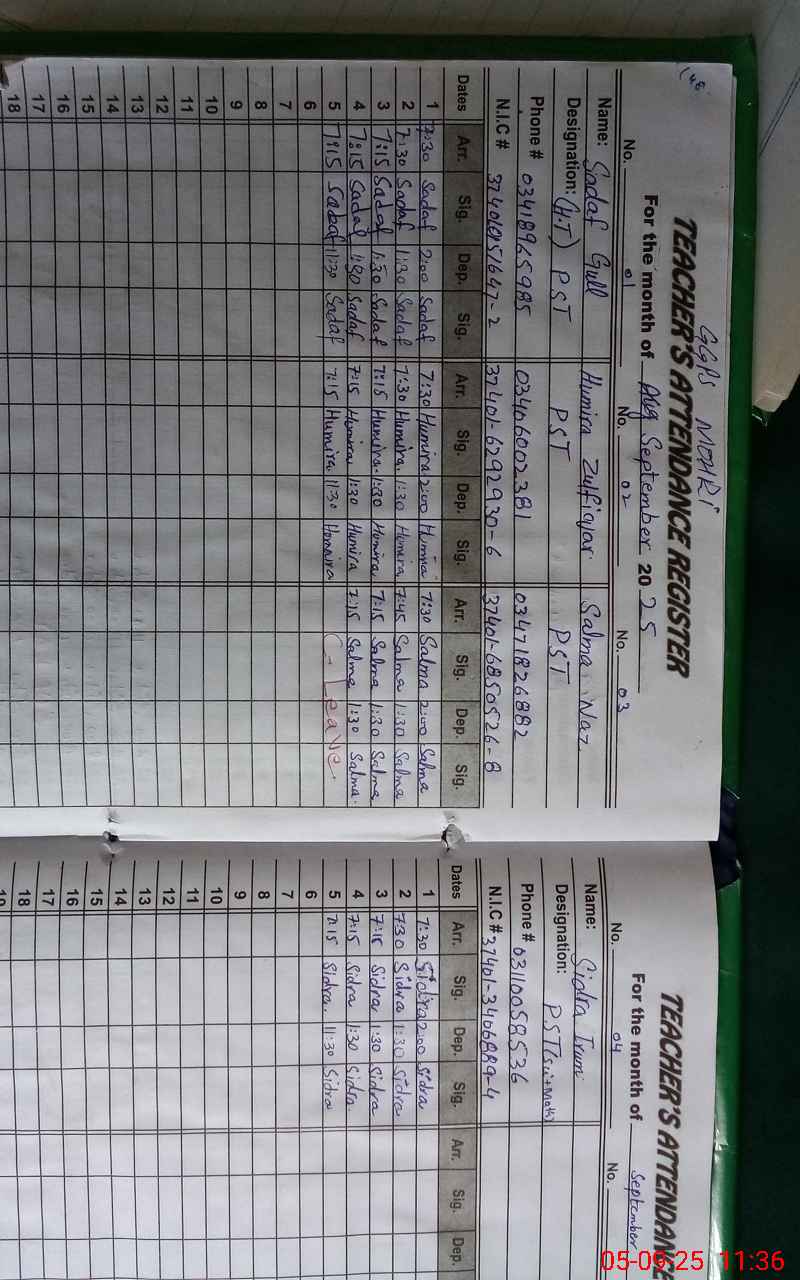 GGPS MOHRI
TEACHER'S ATTENDANCE REGISTER
For the month of Aug September 2025
No. 01 No. 02 No. 03
Name: Sadaf Gull Humira Zulfiqar Salma Naz
Designation: (H.T) PST PST PST
Phone # 03418965985 03406002381 03471826882
N.I.C # 37401-6292930-6 37401-6850526-8
Dates Arr. Sig. Dep. Sig. Arr. Sig. Dep. Sig. Arr. Sig. Dep. Sig.
1 7:30 Sadaf 2:00 Sadaf 7:30 Humira 2:00 Humira 7:30 Salma 2:00 Salma
2 7:30 Sadaf 1:30 Sadaf 7:30 Humira. 1:30 Humira 7:45 Salma 1:30 Salma
3 7:15 Sadaf 1:30 Sadaf 7:15 Humira. 1:30 Humira 7:15 Salma 1:30 Salma
4 7:15 Sadaf 1:30 Sadaf 7:15 Humira 1:30 Humira 7:15 Salma 1:30 Salma.
5 7:15 Sadaf 11:30 Sadaf 7:15 Humira 11:30 Homaira C-Leave.
6
7
8
9
10
11
12
13
14
15
16
17
18
TEACHER'S ATTENDANCE
For the month of September
No. 04 No.
Name: Sidra Irum
Designation: PST(Sci+Math)
Phone # 03110058536
N.I.C # 37401-3406889-4
Dates Arr. Sig. Dep. Sig. Arr. Sig. Dep.
1 7:30 Sidra 2:00 Sidra
2 7:30 Sidra 1:30 Sidra
3 7:15 Sidra 1:30 Sidra
4 7:15 Sidra 1:30 Sidra
5 7:15 Sidra. 11:30 Sidra
6
7
8
9
10
11
12
13
14
15
16
17
18
19
05-09-25 11:36